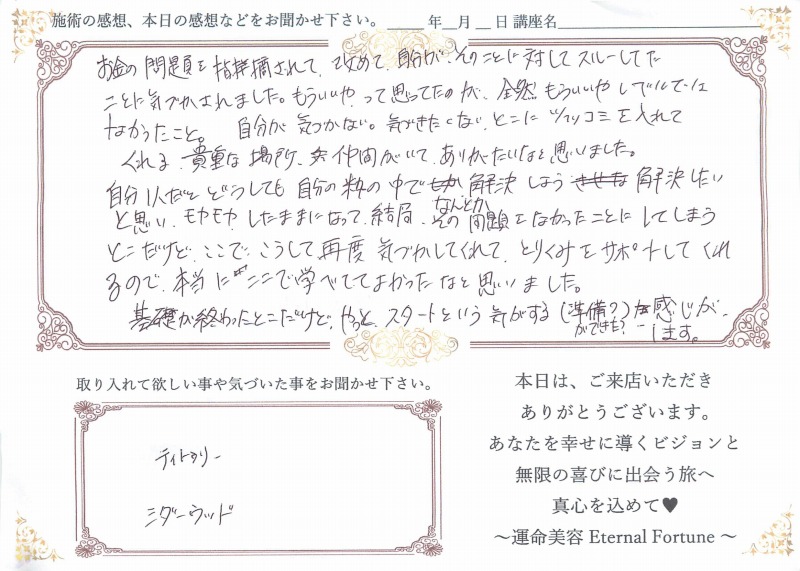 施術の感想、本日の感想などをお聞かせ下さい。 ____ 年__月 __ 日 講座名
お金の問題を指摘されて、改めて、自分が、そのことに対してスルーしてた
ことに気づかされました。もういいや、って思ってたのが、全然もういいや レベルでは
なかったこと。 自分が気づかない。気づきたくない、とこに ツッコミを入れて
くれる、貴重な場所、仲間がいて、ありがたいなと思いました。
自分1人だと どうしても 自分の枠の中で 解決しよう 解決したい
と思い、モヤモヤしたままになって、結局、なんとか その問題をなかったことに してしまう
とこだけど、ここで、こうして再度 気づかしてくれて、とりくみをサポートしてくれ
るので、本当に ここで学べててよかったなと思いました。
基礎が終わったとこだけど、やっと、スタートという気がする (準備?)ができた? 感じが
します。
取り入れて欲しい事や気づいた事をお聞かせ下さい。
ティトゥリー
ミダーウッド
本日は、ご来店いただき
ありがとうございます。
あなたを幸せに導くビジョンと
無限の喜びに出会う旅へ
真心を込めて♥
〜運命美容 Eternal Fortune 〜